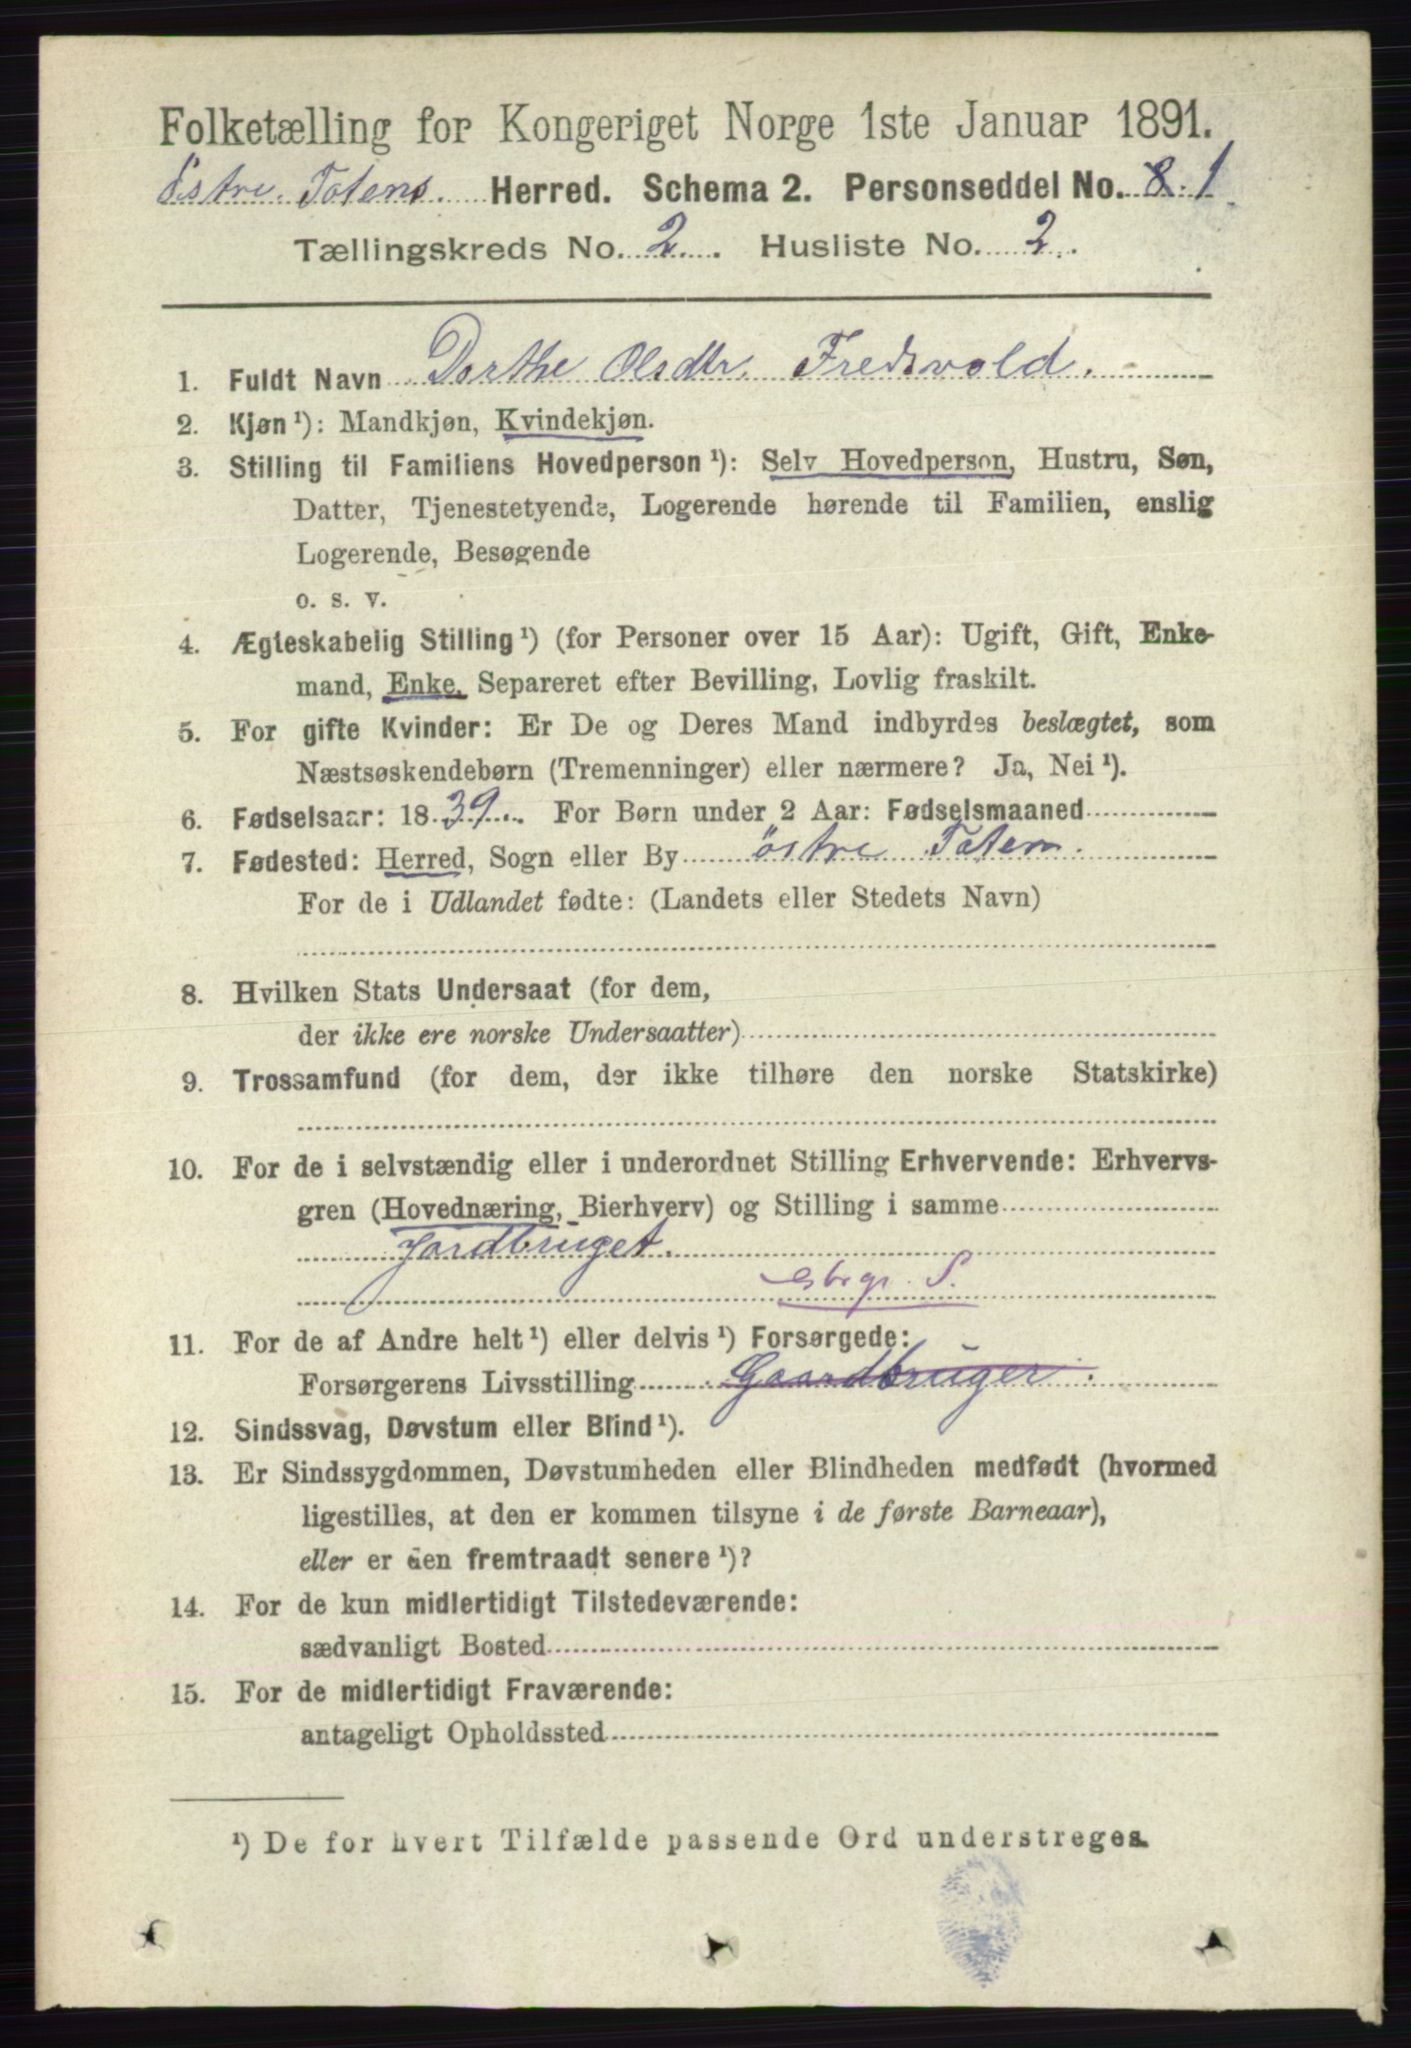 Folketælling for Kongeriget Norge 1ste Januar 1891.
Østre Totens Herred. Schema 2. Personseddel No. 8. 1
Tællingskreds No. 2. Husliste No. 2.
1. Fuldt Navn Dorthe Olsdtr. Fredsvold.
2. Kjøn ¹): Mandkjøn, Kvindekjøn.
3. Stilling til Familiens Hovedperson ¹): Selv Hovedperson, Hustru, Søn,
Datter, Tjenestetyende, Logerende hørende til Familien, enslig
Logerende, Besøgende
o. s. v.
4. Ægteskabelig Stilling ¹) (for Personer over 15 Aar): Ugift, Gift, Enke-
mand, Enke, Separeret efter Bevilling, Lovlig fraskilt.
5. For gifte Kvinder: Er De og Deres Mand indbyrdes beslægtet, som
Næstsøskendebørn (Tremenninger) eller nærmere? Ja, Nei ¹).
6. Fødselsaar: 1839. For Børn under 2 Aar: Fødselsmaaned
7. Fødested: Herred, Sogn eller By østre Toten.
For de i Udlandet fødte: (Landets eller Stedets Navn)
8. Hvilken Stats Undersaat (for dem,
der ikke ere norske Undersaatter)
9. Trossamfund (for dem, der ikke tilhøre den norske Statskirke)
10. For de i selvstændig eller i underordnet Stilling Erhvervende: Erhvervs-
gren (Hovednæring, Bierhverv) og Stilling i samme
Jordbruget.
S.
11. For de af Andre helt ¹) eller delvis ¹) Forsørgede:
Forsørgerens Livsstilling Gaardbruger.
12. Sindssvag, Døvstum eller Blind ¹).
13. Er Sindssygdommen, Døvstumheden eller Blindheden medfødt (hvormed
ligestilles, at den er kommen tilsyne i de første Barneaar),
eller er den fremtraadt senere ¹)?
14. For de kun midlertidigt Tilstedeværende:
sædvanligt Bosted
15. For de midlertidigt Fraværende:
antageligt Opholdssted
¹) De for hvert Tilfælde passende Ord understreges.